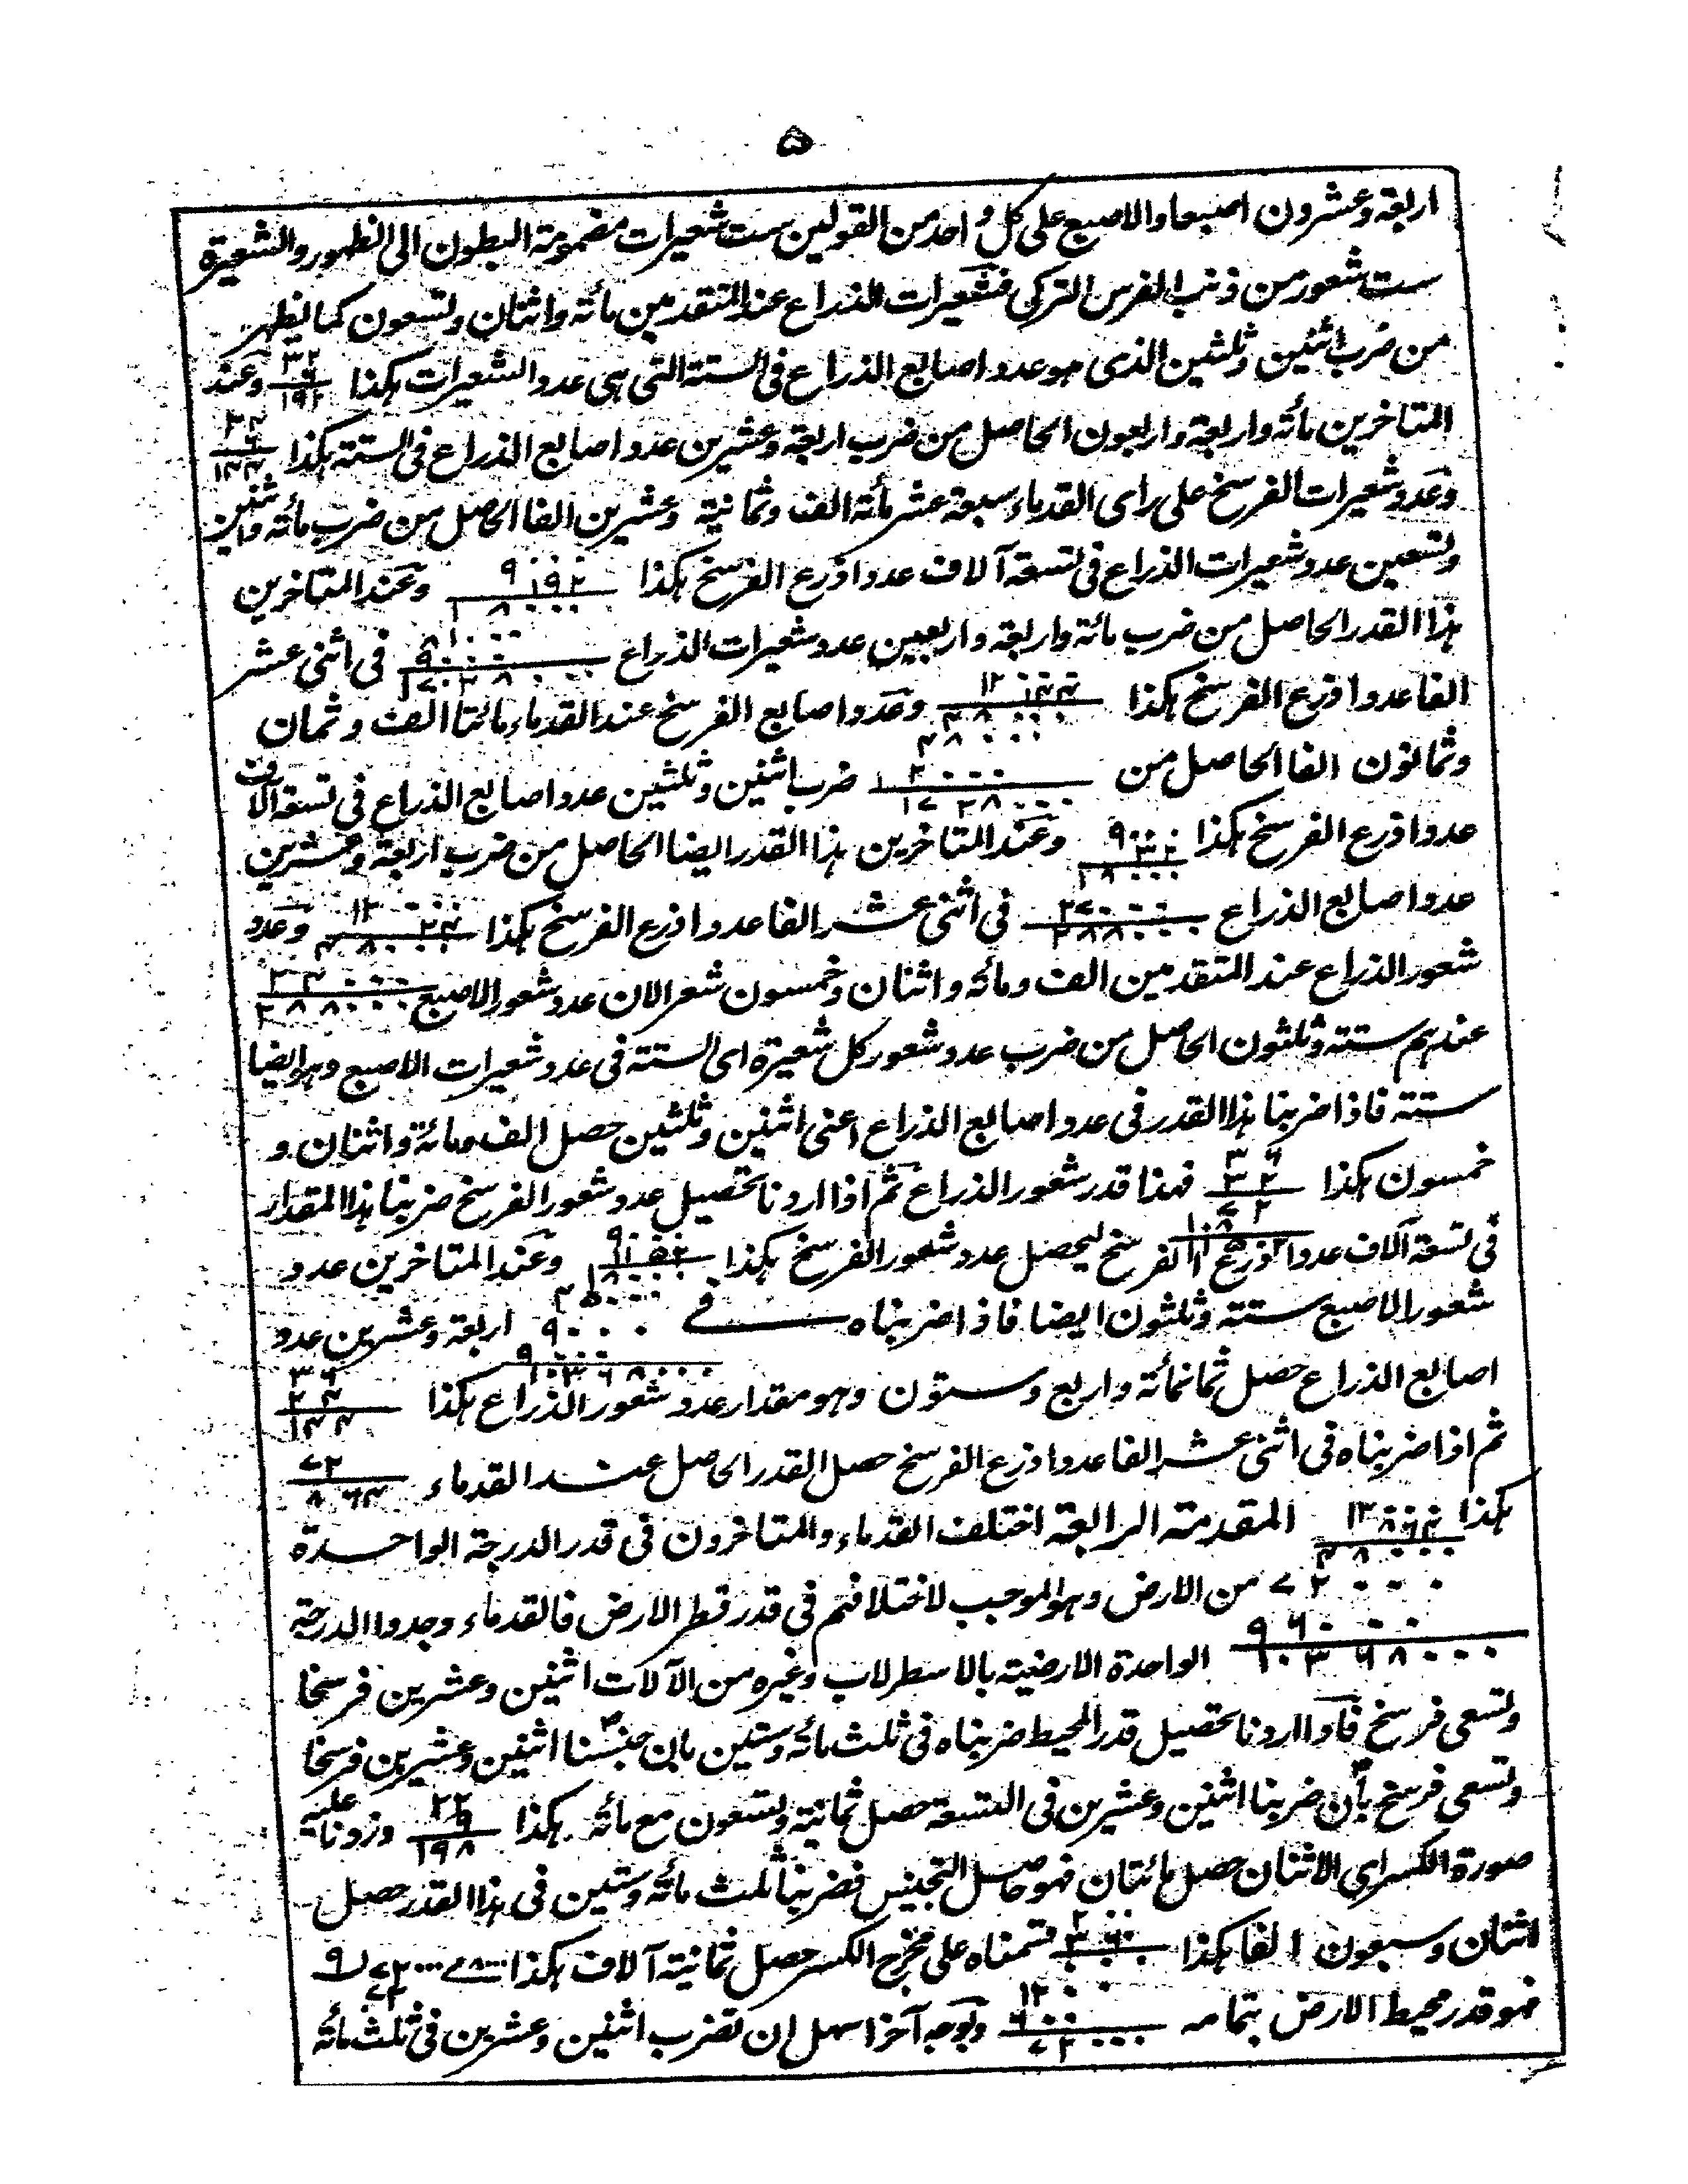 ۵
اربعة وعشرون اصبعا والاصبع على كل واحد من القولين ست شعيرات مضمومة البطون الى الظهور والشعيرة
ست شعور من ذنب الفرس التركي فشعيرات الذراع عند المتقدمين مائة واثنان وتسعون كما يظهر
من ضرب اثنين وثلثين الذى هو عدد اصابع الذراع فى الستة التى هى عدد الشعيرات هكذا ۳۲ ۶ ۱۹۲ وعند
المتاخرين مائة واربعة واربعون الحاصل من ضرب اربعة وعشرين عدد اصابع الذراع فى الستة هكذا ۲۴ ۶ ۱۴۴
وعدد شعيرات الفرسخ على راى القدماء سبعة عشر مائة الف وثمانية وعشرين الفا الحاصل من ضرب مائة واثنين
وتسعين عدد شعيرات الذراع فى تسعة آلاف عدد اذرع الفرسخ هكذا ۹۰۰۰ ۱۹۲ ۱۸۰۰۰ وعند المتاخرين
هذا القدر الحاصل من ضرب مائة واربعة واربعين عدد شعيرات الذراع ۸۱۰۰۰۰ ۹۰۰۰ ۱۷۲۸۰۰۰ فى اثنى عشر
الفا عدد اذرع الفرسخ هكذا ۱۲۰۰۰ ۱۴۴ ۴۸۰۰۰ ۴۸۰۰۰ وعدد اصابع الفرسخ عند القدماء مائتا الف وثمان
وثمانون الفا الحاصل من ۱۲۰۰۰ ۱۷۲۸۰۰۰ ضرب اثنين وثلثين عدد اصابع الذراع فى تسعة الاف
عدد اذرع الفرسخ هكذا ۹۰۰۰ ۳۲ ۱۸۰۰۰ وعند المتاخرين هذا القدر ايضا الحاصل من ضرب اربعة وعشرين
عدد اصابع الذراع ۲۷۰۰۰ ۲۸۸۰۰۰ فى اثنى عشر الفا عدد اذرع الفرسخ هكذا ۱۲۰۰۰ ۲۴ ۴۸۰۰۰ وعدد
شعور الذراع عند المتقدمين الف ومائة واثنان وخمسون شعر الان عدد شعور الاصبع ۲۴۰۰۰ ۲۸۸۰۰۰
عندهم ستة وثلثون الحاصل من ضرب عدد شعور كل شعيرة اى الستة فى عدد شعيرات الاصبع وهو ايضا
ستة فاذا ضربنا هذا القدر فى عدد اصابع الذراع اعنى اثنين وثلثين حصل الف ومائة واثنان و
خمسون هكذا ۳۶ ۳۲ ۷۲ ۱۰۸ فهذا قدر شعور الذراع ثم اذا اردنا تحصيل عدد شعور الفرسخ ضربنا هذا المقدار
فى تسعة آلاف عدد اذرع الفرسخ ليحصل عدد شعور الفرسخ هكذا ۹۰۰۰ ۱۱۵۲ ۱۸۰۰۰ وعند المتاخرين عدد
شعور الاصبع ستة وثلثون ايضا فاذا ضربناه فى ۹۰۰۰ ۴۵۰۰۰ ۱۰۳۶۸۰۰۰ اربعة وعشرين عدد
اصابع الذراع حصل ثمانمائة واربع وستون وهو مقدار عدد شعور الذراع هكذا ۳۶ ۲۴ ۱۴۴
ثم اذا ضربناه فى اثنى عشر الفا عدد اذرع الفرسخ حصل القدر الحاصل عند القدماء ۷۲ ۸۶۴
هكذا ۱۲۰۰۰ ۸۶۴ ۴۸۰۰۰ المقدمة الرابعة اختلف القدماء والمتاخرون فى قدر الدرجة الواحدة
۷۲۰۰۰ من الارض وهو الموجب لاختلافهم فى قدر قطر الارض فالقدماء وجدوا الدرجة
۹۶۰۰۰ ۱۰۳۶۸۰۰۰ الواحدة الارضية بالاسطرلاب وغيره من الآلات اثنين وعشرين فرسخا
وتسعى فرسخ فاذا اردنا تحصيل قدر المحيط ضربناه فى ثلث مائة وستين بان جنسنا اثنين وعشرين فرسخا
وتسعى فرسخ بان ضربنا اثنين وعشرين فى التسعة حصل ثمانية وتسعون مع مائة هكذا ۲۲ ۹ ۱۹۸ وزدنا عليه
صورة الكسر اى الاثنان حصل مائتان فهو حاصل التجنيس فضربنا ثلث مائة وستين فى هذا القدر حصل
اثنان وسبعون الفا هكذا ۲۰۰ ۳۶۰ قسمناه على مخرج الكسر حصل ثمانية آلاف هكذا ۸۰۰۰ ۷۲۰۰۰ ۹ ۷۲
فهو قدر محيط الارض بتمامه ۱۲۰۰۰ ۶۰۰ ۷۲۰۰۰ وبوجه آخر اسهل ان تضرب اثنين وعشرين فى ثلث مائة